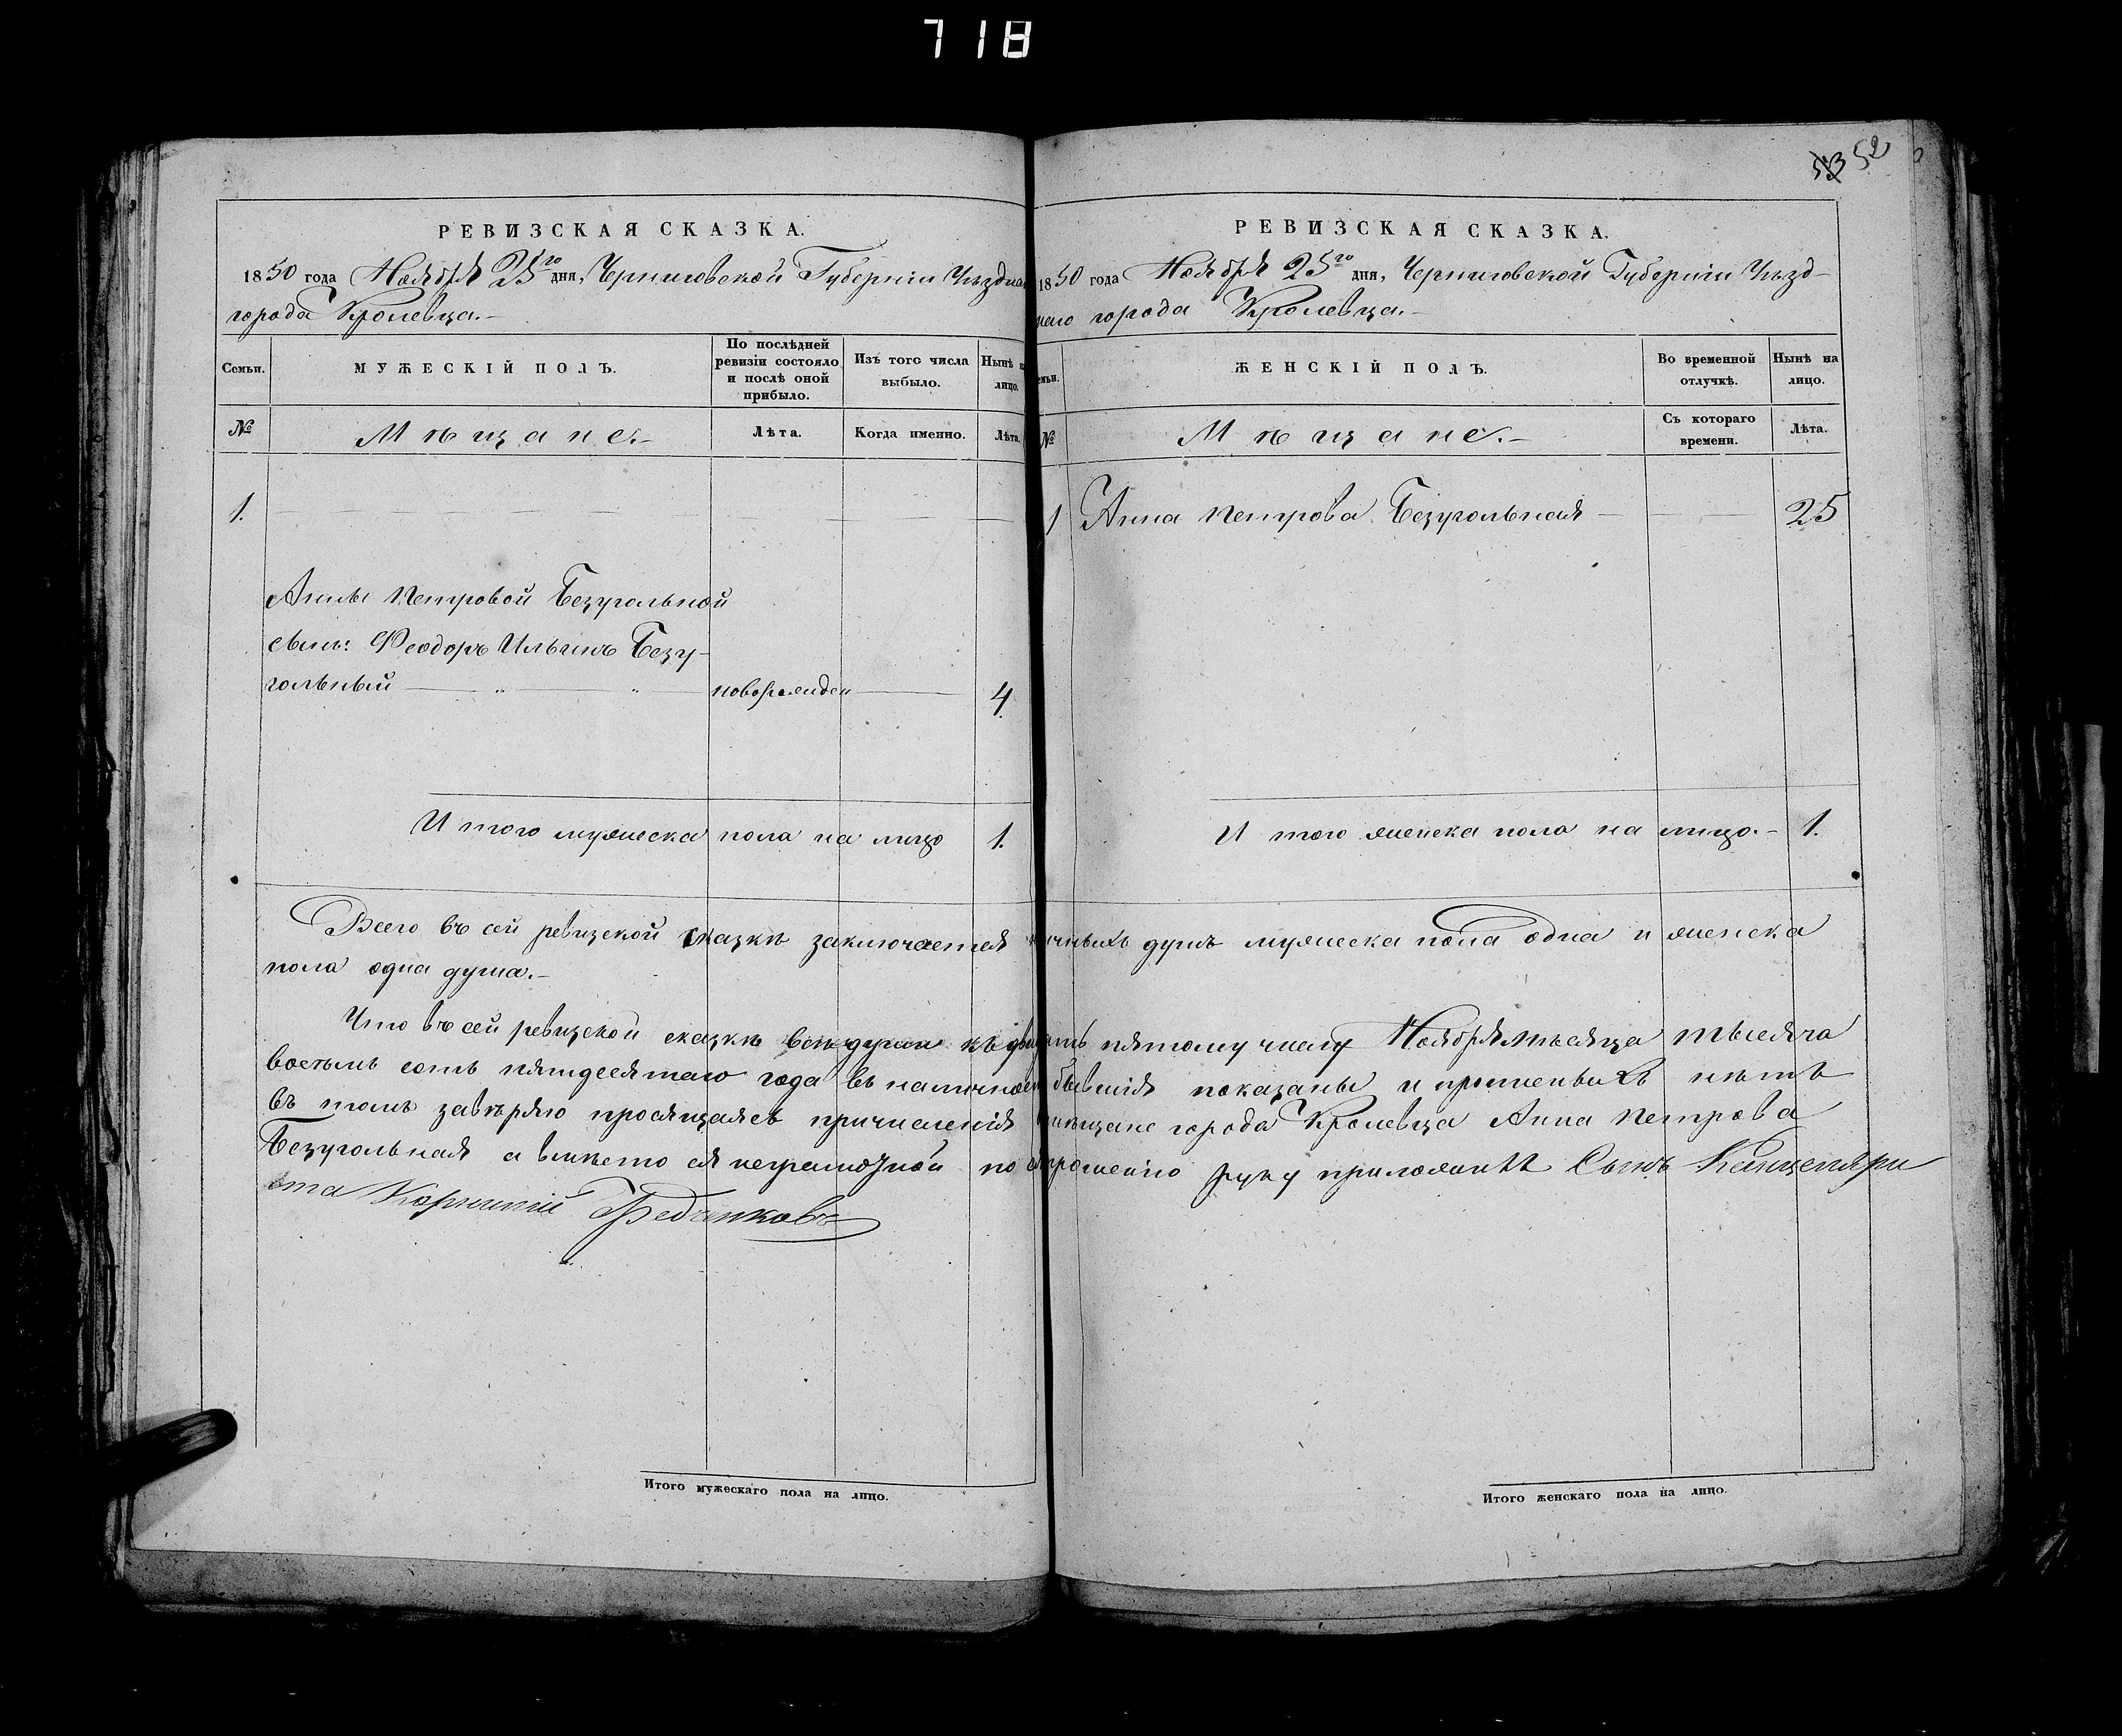 718
53 52
РЕВИЗСКАЯ СКАЗКА.
1850 года Ноября 25го дня, Черниговской Губерніи Уѣзднаго
города Кролевца.–
Семьи.
МУЖЕСКІЙ ПОЛЪ.
По послѣдней ревизіи состояло и послѣ оной прибыло.
Изъ того числа выбыло.
Нынѣ на лицо.
№
Мѣщане.–
Лѣта.
Когда именно.
Лѣта.
1.
Анны Петровой Безугольной
сынъ: Феодоръ Ильинъ Безу-
гольный новорожден 4.
Итого мужеска пола на лицо 1.
РЕВИЗСКАЯ СКАЗКА.
1850 года Ноября 25го дня, Черниговской Губерніи Уѣзд-
наго города Кролевца.–
Семьи.
ЖЕНСКІЙ ПОЛЪ.
Во временной отлучкѣ.
Нынѣ на лицо.
№
Мѣщане.–
Съ котораго времени.
Лѣта.
1 Анна Петрова Безугольная 25
Итого женска пола на лицо.– 1.
Всего въ сей ревизской сказкѣ заключается наличныхъ душъ мужеска пола одна и женска
пола одна душа.–
Что въ сей ревизской сказкѣ всѣ души къ двадцать пятому числу Ноября мѣсяца тысяча
восемь сотъ пятидесятаго года въ наличности бывшія показаны и прописныхъ нѣтъ
въ томъ завѣряю просящаяся причисленія въ мѣщане города Кролевца Анна Петрова
Безугольная а вмѣсто ея неграмотной по ея прошенію руку приложилъ Сынъ Канцеляри
ста Федченковъ
Итого мужескаго пола на лицо.
Итого женскаго пола на лицо.